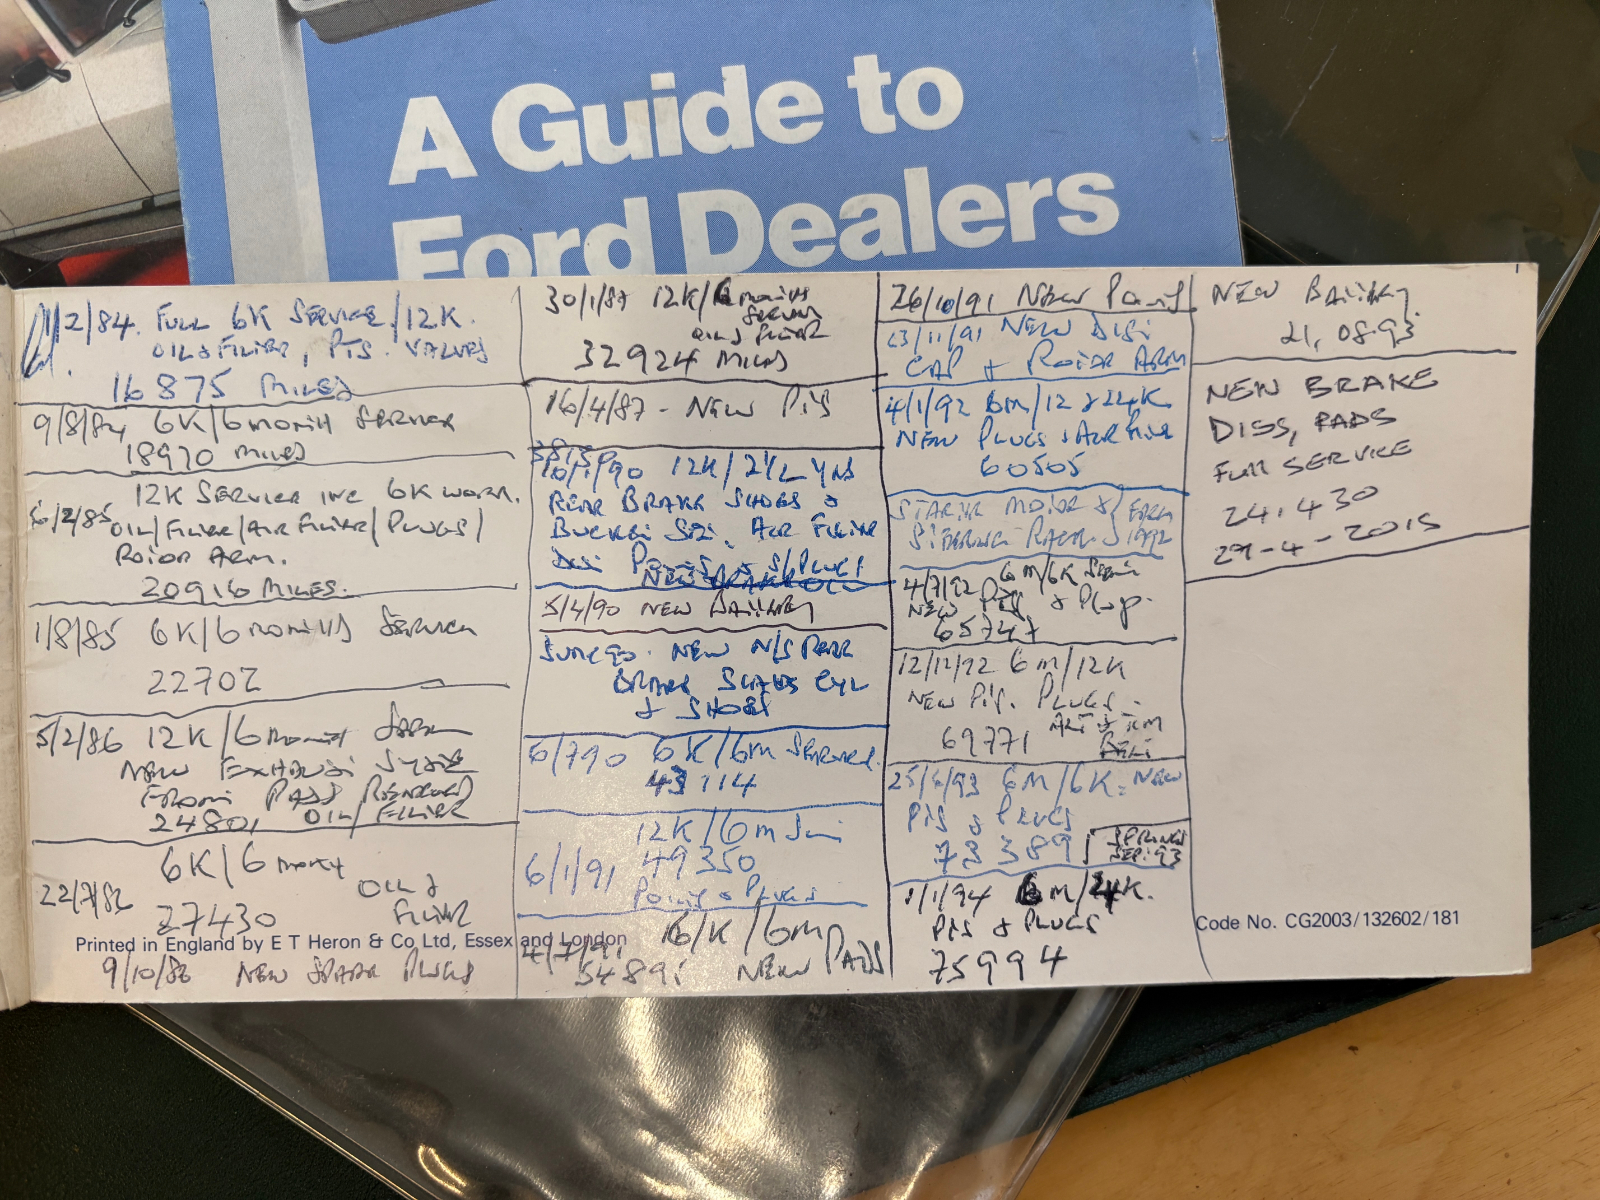 A Guide to
Ford Dealers
2/84. FULL 6K SERVICE/12K.
OIL & FILTER, PTS. VALVES
16875 MILES
9/8/84 6K/6 MONTH SERVICE
18970 MILES
12K SERVICE INC 6K WORK.
6/2/85 OIL/FILTER/AIR FILTER/PLUGS/
ROTOR ARM.
20916 MILES.
1/8/85 6K/6 MONTHS SERVICE
22702
5/2/86 12K/6 MONTH
NEW EXHAUST
FRONT PADS RENEWED
24801 OIL/FILTER
6K/6 MONTH
22/7/86 OIL &
27430 FILTER
Printed in England by E T Heron & Co Ltd, Essex and London
9/10/86 NEW SPARK PLUGS
30/1/87 12K/6 MONTHS
SERVICE
OIL & FILTER
32924 MILES
16/4/87 - NEW PTS
10/1/90 12K/2
REAR BRAKE SHOES &
AIR FILTER
S/PLUGS
5/4/90 NEW BATTERY
JUNE 90. NEW N/S REAR
BRAKE SLAVE CYL
& SHOES
6/790 6K/6M SERVICE.
43114
12K/6M
6/1/91 49350
POINTS & PLUGS
6/K/6M
4/7/91
54891 NEW PADS
26/10/91 NEW POINTS
23/11/91 NEW DIST
CAP & ROTOR ARM
4/1/92 6M/12 & 24K
NEW PLUGS & AIR FILTER
60505
STARTER MOTOR &
STEERING RACK 1992
4/7/92 6M/6K
NEW PTS & PLUGS
65747
12/12/92 6M/12K
NEW PTS. PLUGS
69771
25/6/93 6M/6K - NEW
PTS & PLUGS
73389
SPRINGS
SEPT 93
1/1/94 6M/24K.
PTS & PLUGS
75994
NEW BATTERY
21.08.93
NEW BRAKE
DISS, PADS
FULL SERVICE
24.430
29-4-2015
Code No. CG2003/132602/181